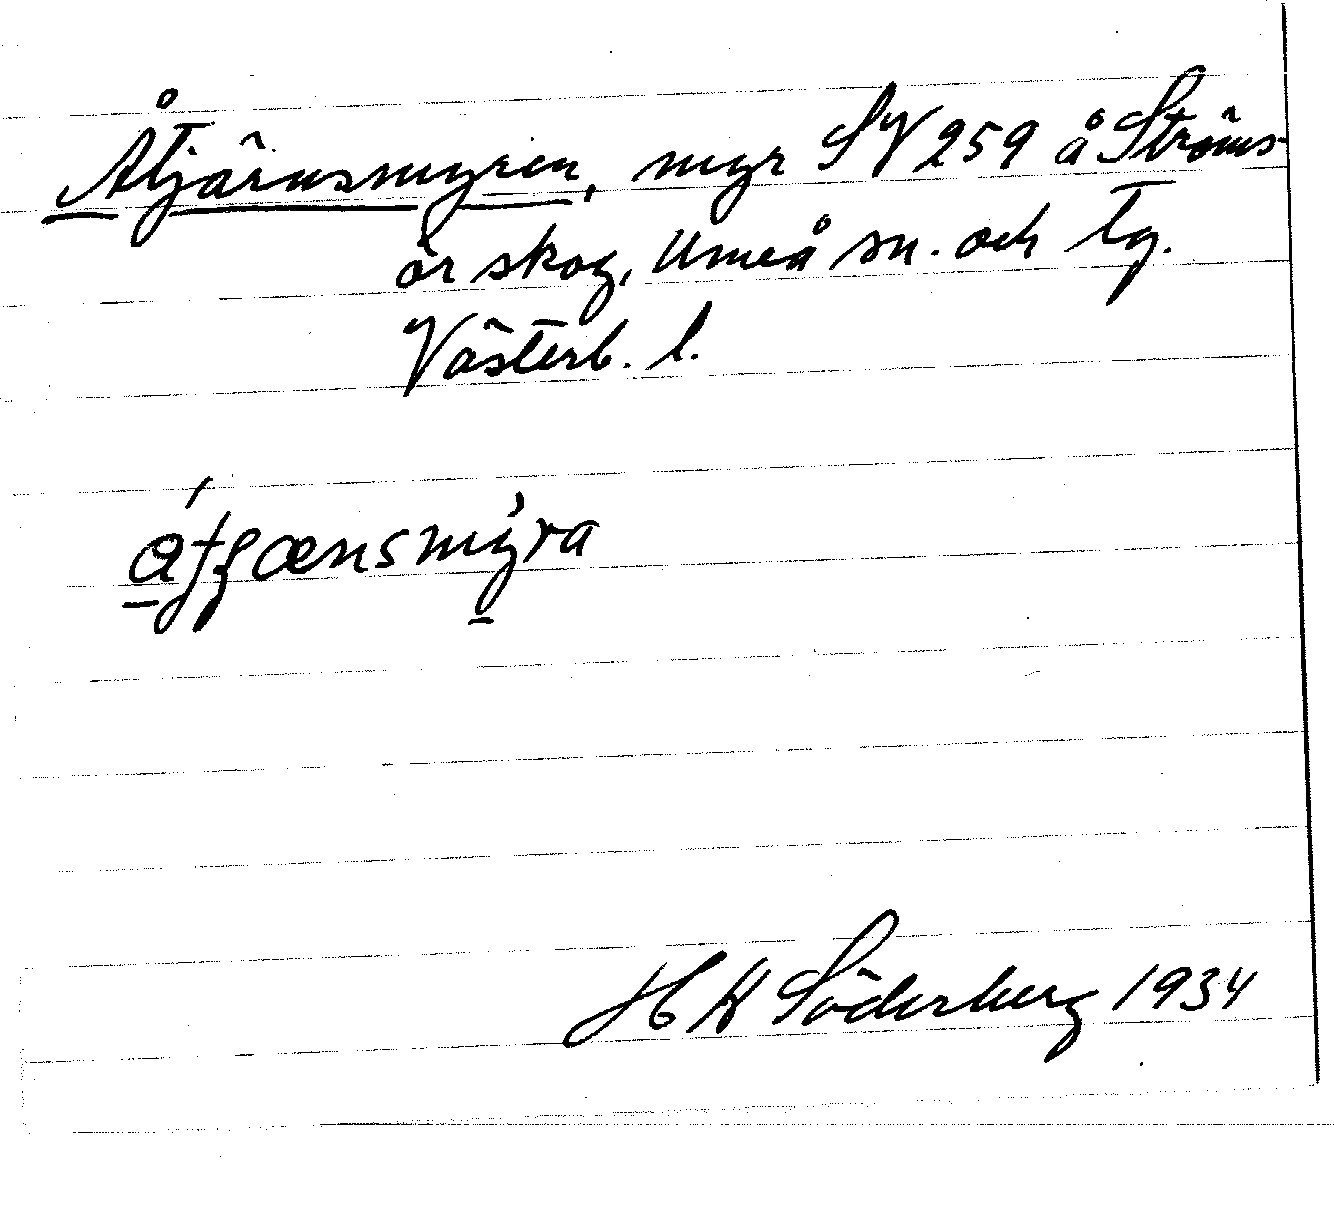 Åtjärnsmyren, myr SV 259 å Ströms-
ör skog, Umeå sn. och Tg.
Västerb. l.
H K Söderberg 1934